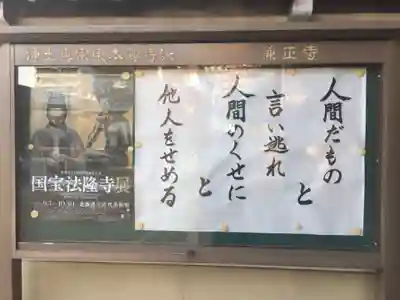 浄土真宗本願寺派
兼正寺
人間だもの
と
言い逃れ
人間のくせに
と
他人をせめる
国宝法隆寺展